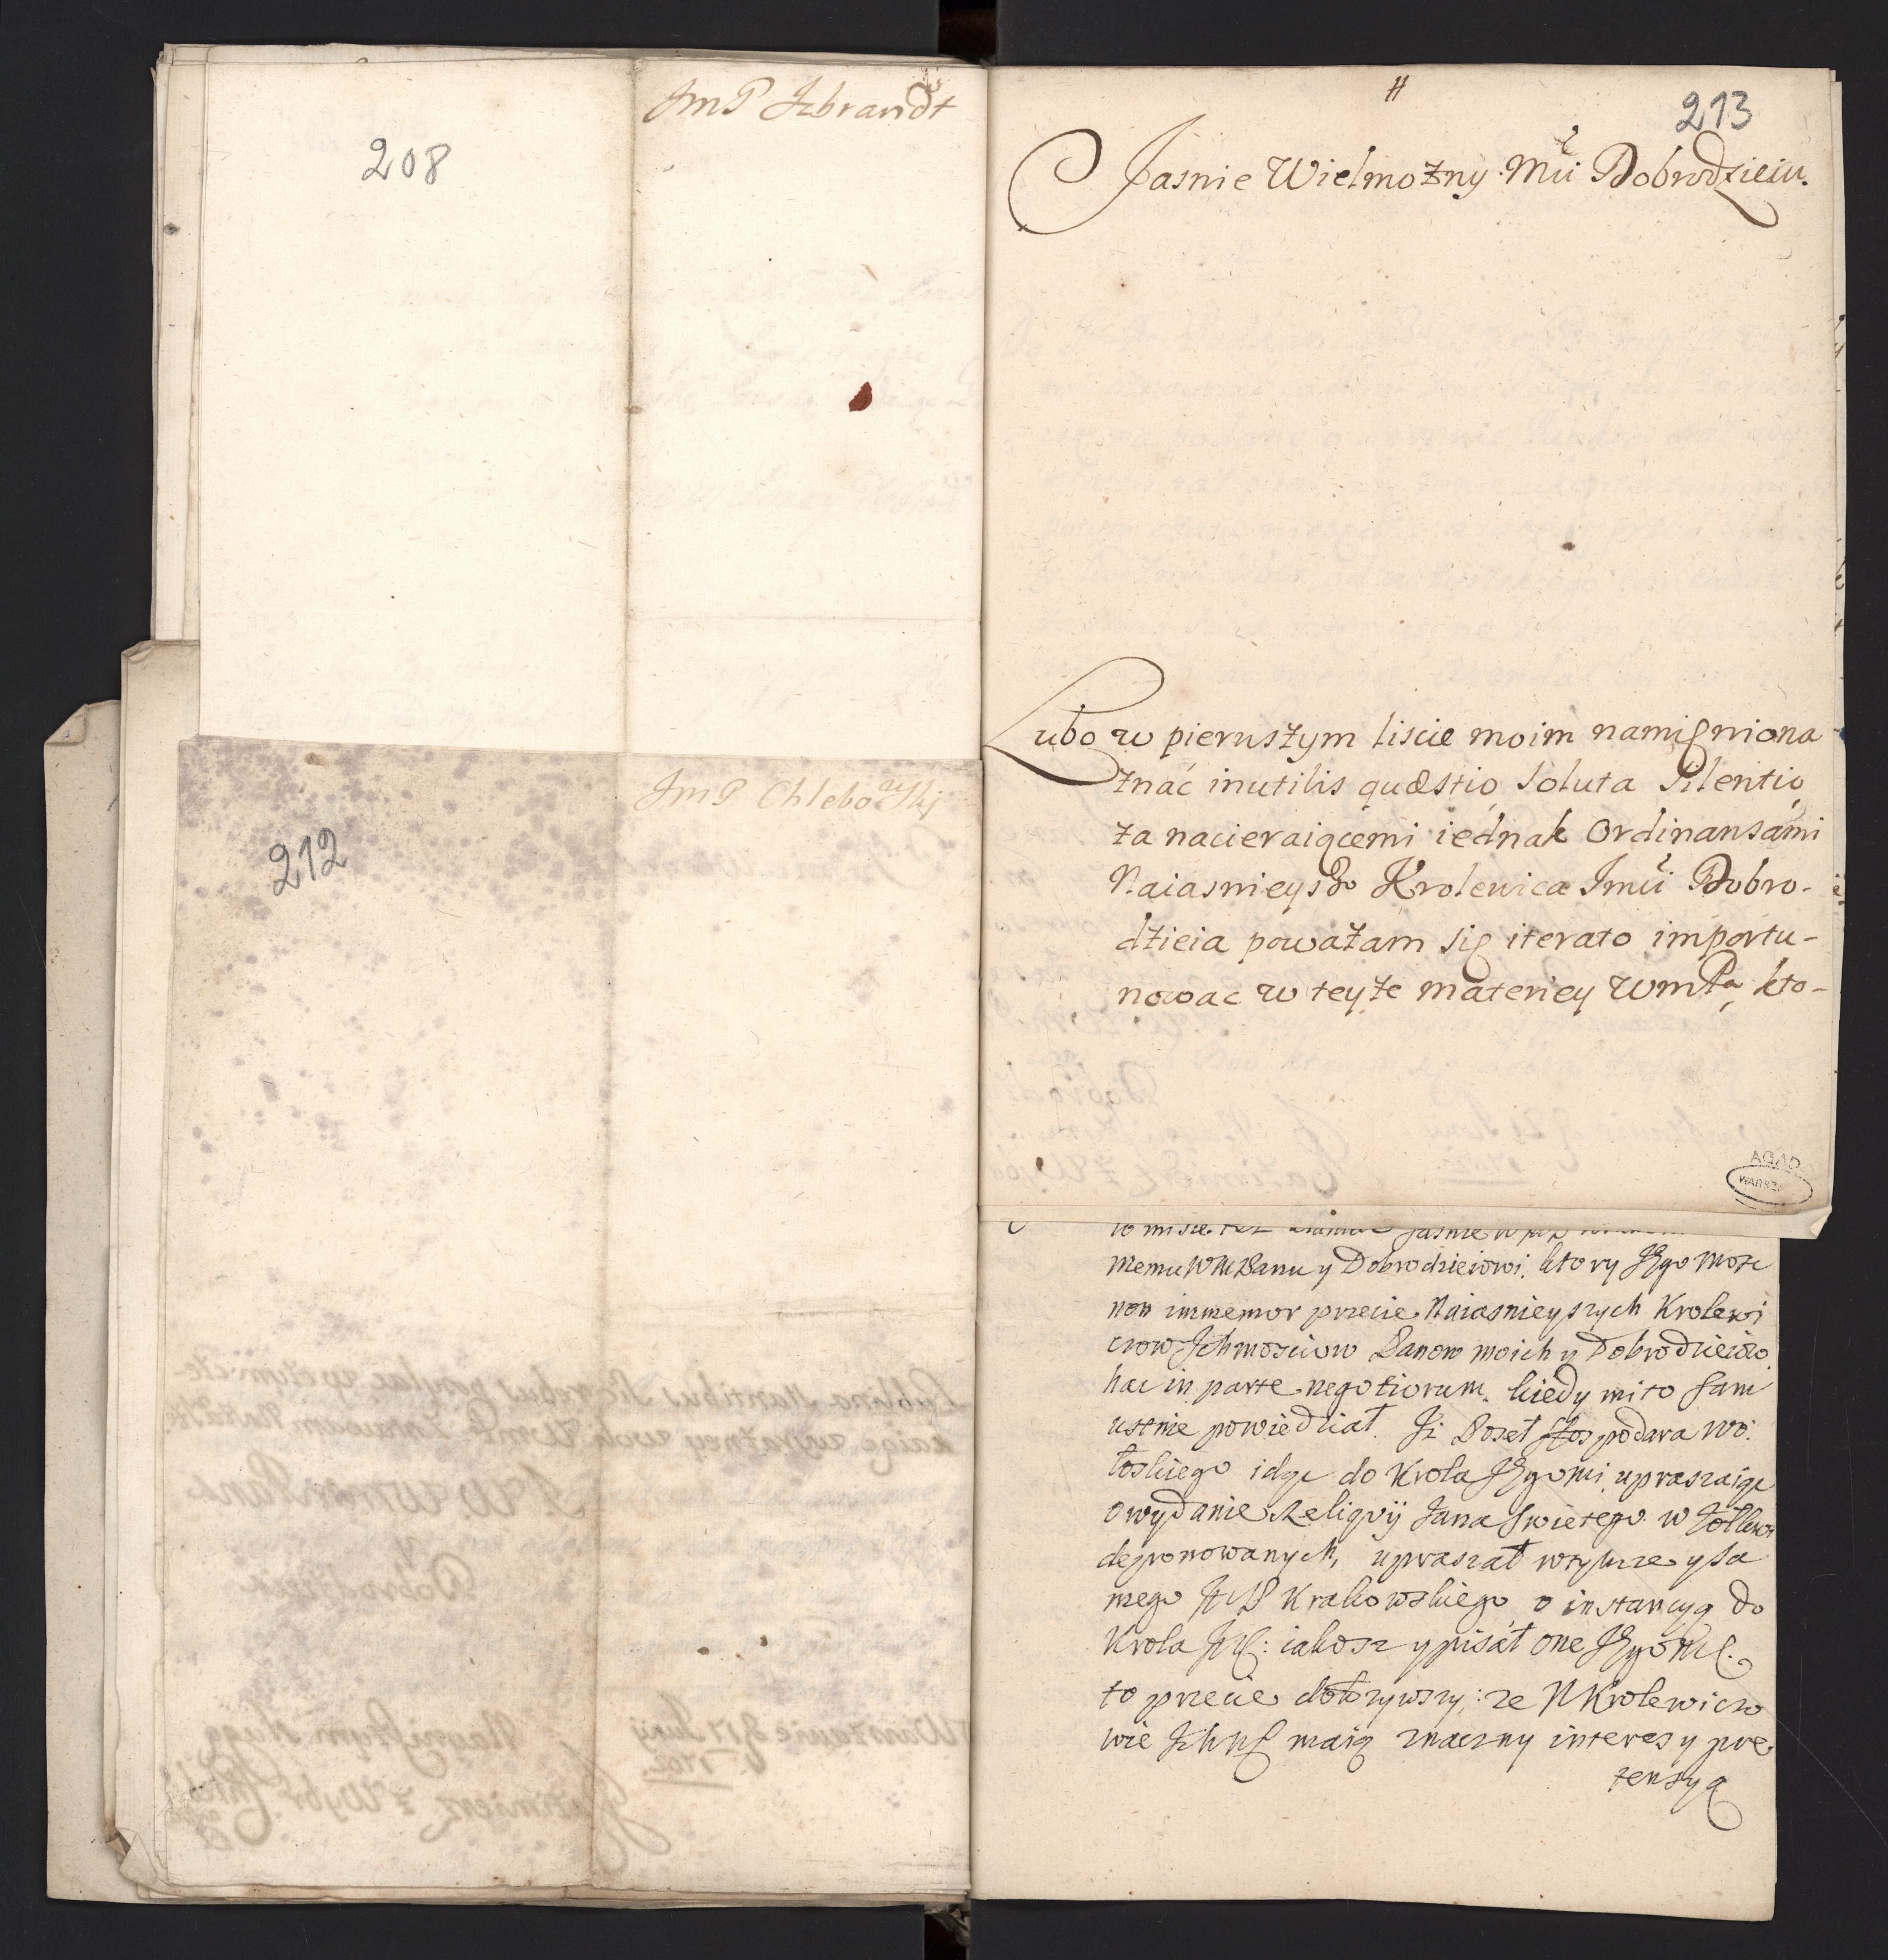 JmP Izbrandt
208
JmP Chlebowskj
212
#
213
Jasnie Wielmożny Mći Dobrodzieiu.
Lubo w pierwszym liscie moim namięniona
znać inutilis quæstio soluta silentio
za nacieraiącemi iednak Ordinansámi
Naiasnieyszo Krolewica Jmći Dobro-
dzieia poważam się iterato importu-
nowac w teyże materiey WmPa, kto-
AGAD
WARSZ
memu WMPanu y Dobrodzieiowi. ktory JEgo Mosc
non immemor przecie Naiasnieyszych Krolewi
czow Ichmosciow Panow moich y Dobrodzieiow
hac in parte negotiorum. kiedy mi to sam
ustnie powiedział. Iż Poseł Hospodara Wo:
łoskiego idąc do Krola JEgomi upraszaiąc
o wydanie Reliqvij Jana Swietego w Żołkwi
deponowanych, upraszał wtymze y sa
mego JMP Krakowskiego o instancyą do
Krola JM: iakosz y pisáł one JEgoMć.
to przecie dołozywszy: ze NKrolewiczo
wie IchMć maią znaczny interes y pre
tensyą